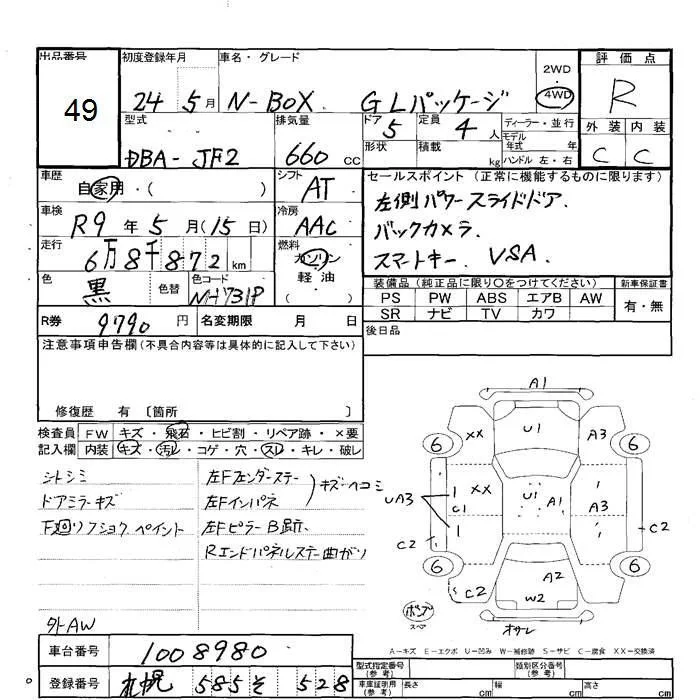 出品番号 初度登録年月 車名・グレード 2WD 4WD 評価点
49 24 5月 N-BOX GLパッケージ R
型式 排気量 ドア 5 定員 4人 ディーラー・並行 外装 内装
DBA-JF2 660cc 形状 積載 kg モデル年式 年式 ハンドル 左・右 C C
車歴 自家用・( ) シフト AT セールスポイント(正常に機能するものに限ります)
車検 R9年5月(15日) 冷房 AAC 左側パワースライドドア.
走行 6万8千872km 燃料 ガソリン 軽油 ( ) バックカメラ.
色 黒 色替 色コード NH731P スマートキー. VSA.
装備品(純正品に限り○をつけてください) 新車保証書
PS PW ABS エアB AW 有・無
SR ナビ TV カワ
R券 9790円 名変期限 月 日 後日品
注意事項申告欄(不具合内容等は具体的に記入して下さい)
修復歴 有〔箇所 〕
検査員 FW キズ・飛石・ヒビ割・リペア跡・×要
記入欄 内装 キズ・汚レ・コゲ・穴・スレ・キレ・破レ
シトシミ 左Fフェンダーステー
ドアミラーキズ 左Fインパネ キズ・ヘコミ
下廻リフショク ペイント 左Fピラー B跡.
Rエンドパネルステー曲ガリ
外AW
A1
XX U1 A3
6 6
UA3 C1 XX U1 A1 A3
C2 C2
6 6
C2 A2 W2 C2
ポンプ スペア オサレ
A-キズ E-エクボ U-凹み W-補修跡 S-サビ C-腐食 XX-交換済
車台番号 1008980 型式指定番号(参考) 類別区分番号(参考)
登録番号 札幌 585 そ 528 車庫証明用(参考) 長さ cm 幅 cm 高さ cm